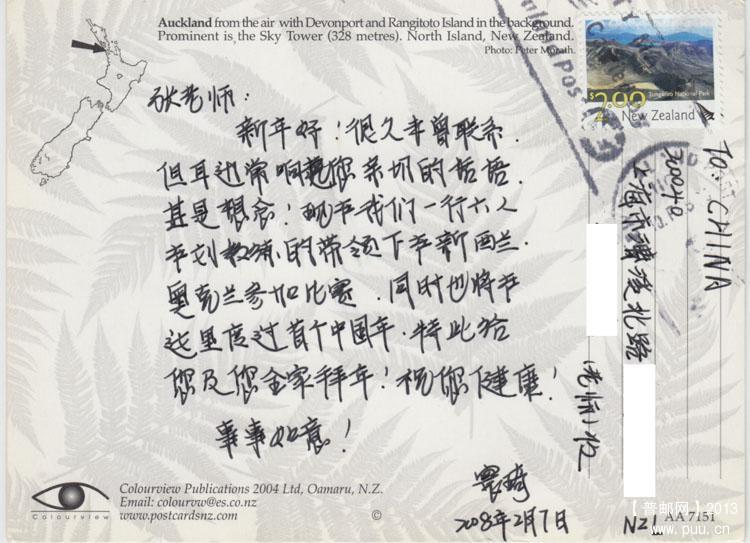 Auckland from the air with Devonport and Rangitoto Island in the background.
Prominent is the Sky Tower (328 metres). North Island, New Zealand.
Photo: Peter Morath.
张老师:
新年好!很久未曾联系.
但耳边常响起您亲切的话语.
甚是想念!现在我们一行六人
在刘教练的带领下在新西兰.
奥克兰参加比赛.同时也将在
这里度过首个中国年.特此给
您及您全家拜年!祝您健康!
事事如意!
2008年2月7日
TO: CHINA
200040
上海市
北路
$2.00
Tongariro National Park
New Zealand
Colourview
Colourview Publications 2004 Ltd, Oamaru, N.Z.
Email: colourvw@es.co.nz
www.postcardsnz.com
©
NZ1
AA7151
【普邮网】2013
www.puu.cn